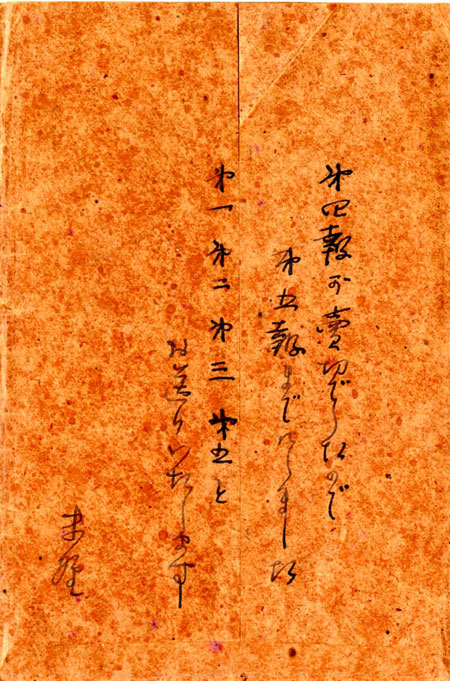 第四報が賣切でしたので
第五報まで ました
第一 第二 第三 第五と
お送りいたします